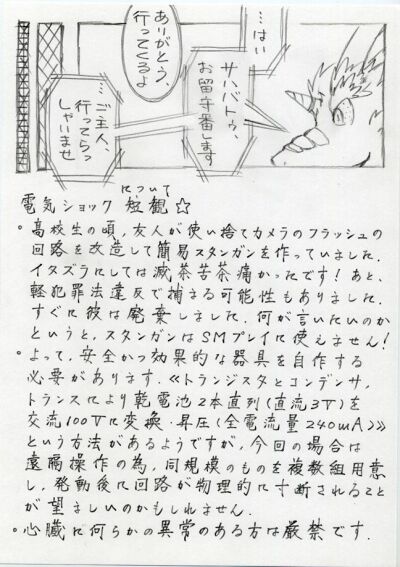 …はい
サハバトゥ、
お留守番します
ありがとう、
行ってくるよ
…ご主人、
行ってらっ
しゃいませ
電気ショックについて短観☆
。高校生の頃,友人が使い捨てカメラのフラッシュの
回路を改造して簡易スタンガンを作っていました.
イタズラにしては滅茶苦茶痛かったです!あと、
軽犯罪法違反で捕まる可能性もありました.
すぐに彼は廃棄しました.何が言いたいのか
というと,スタンガンはSMプレイに使えません!
。よって,安全かつ効果的な器具を自作する
必要があります.≪トランジスタとコンデンサ,
トランスにより乾電池2本直列(直流3V)を
交流100Vに変換・昇圧(全電流量240mA)≫
という方法があるようですが,今回の場合は
遠隔操作の為,同規模のものを複数組用意
し,発動後に回路が物理的に寸断されること
が望ましいのかもしれません.
。心臓に何らかの異常のある方は厳禁です.